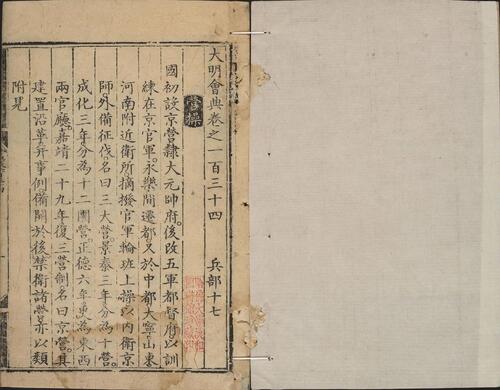 大明會典卷之一百三十四 兵部十七
營操
國初設京營隸大元帥府後改五軍都督府以訓
練在京官軍永樂間遷都又於中都大寧山東
河南附近衛所摘撥官軍輪班上操以內衛京
師外備征伐名曰三大營景泰三年分為十營
成化三年分為十二團營正德六年更為東西
兩官廳嘉靖二十九年復三營制名曰京營其
建置沿革并事例備開於後禁衛諸營亦以類
附見